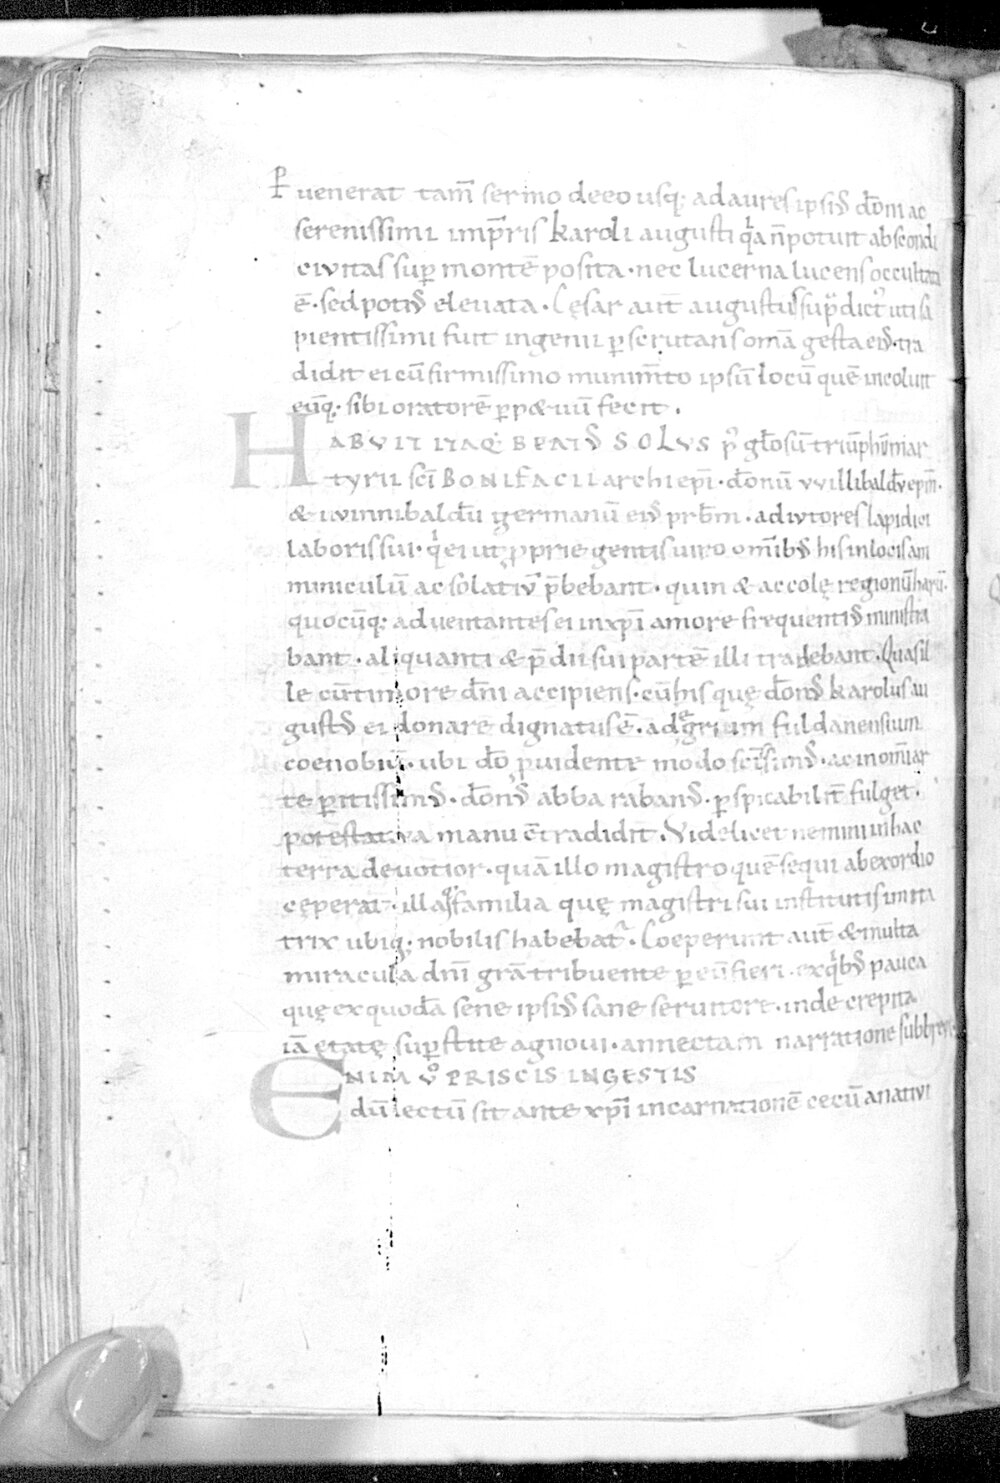 Puenerat tam̅ sermo de eo usq; ad aures ipsiꝰ do̅ni ac
serenissimi imp̅ris karoli augusti q̇a n̅ potuit abscondi
civitas sup̱ monte̅ posita · nec lucerna lucens occultata
e̅ · sed potiꝰ elevata · Cęsar aut̅ augustus sup̅dictꝰ uti sa
pientissimi fuit ingenii p̱scrutans om̅a gesta eiꝰ · tra
didit ei cu̅ firmissimo munim̅to ipsu̅ locu̅ que̅ incoluit
eu̅q; · sibi oratore̅ p̱p&uu̅ fecit .
HABUIT ITAQ; BEATꝰ SOLVS p̊ gl̅osu̅ triu̅phu̅ mar
tyrii sc̅i BONIFACII archiep̅i · do̅nu̅ vvillibaldu̅ ep̅m ·
& wnnibaldu̅ germanu̅ eiꝰ prb̅m · adiutores lapidici
laboris sui · q̇ ei ut ꝓprie gentis uiro om̅ibꝰ his in locis am
miniculu̅ ac solatiu̅ p̅bebant · quin & accolę regionu̅ haru̅ ·
quocu̅q; aduentantes ei in xp̅i amore frequentiꝰ ministra
bant · aliquanti & p̅dii sui parte̅ illi tradebant · Quas il
le cu̅ timore dn̅i accipiens · cu̅ his quę do̅nꝰ karolus au
gustꝰ ei donare dignatus e̅ · ad egrium fuldanensium
coenobiu̅ · ubi do̅ ꝓuidente modo sc̅issimꝰ · ac in om̅i ar
te p̱itissimꝰ · do̅nꝰ abba rabanꝰ · p̱spicabilit̅ fulget ·
potestatiua manu co̅tradidit · Videlicet nemini in hac
terra deuotior · qua̅ illo magistro que̅ sequi ab exordio
cęperat · illa q̊q; familia quę magistri sui institutis imita
trix ubiq; · nobilis habebat᷑ · Coeperunt aut̅ & multa
miracula dn̅i gra̅ tribuente p̱ eu̅ fieri · ex q̇bꝰ pauca
quę ex quoda̅ sene ipsiꝰ sane seruitore · inde crepita
ia̅ ętate sup̱stite agnovi · annectam narratione sub breve
ENIM V̊ PRISCIS IN GESTIS
du̅ lectu̅ sit ante xp̅i incarnatione̅ cecu̅ a nativi